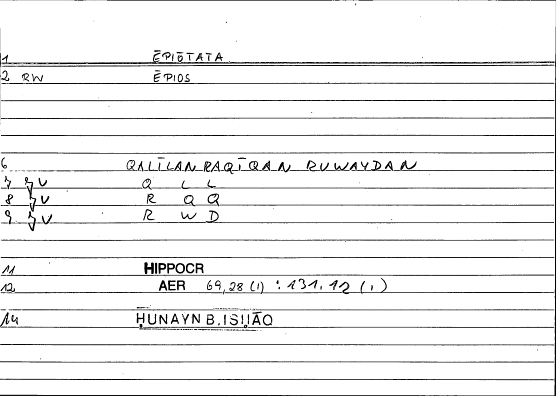 1 ĒPIŌTATA
2 RW ĒPIOS
6 QALĪLAN RAQĪQAN RUWAYDAN
7 ϟU Q L L
8 ϟU R Q Q
9 ϟU R W D
11 HIPPOCR
12 AER 69,28 (1) : 131.12 (1)
14 ḤUNAYN B. ISḤĀQ